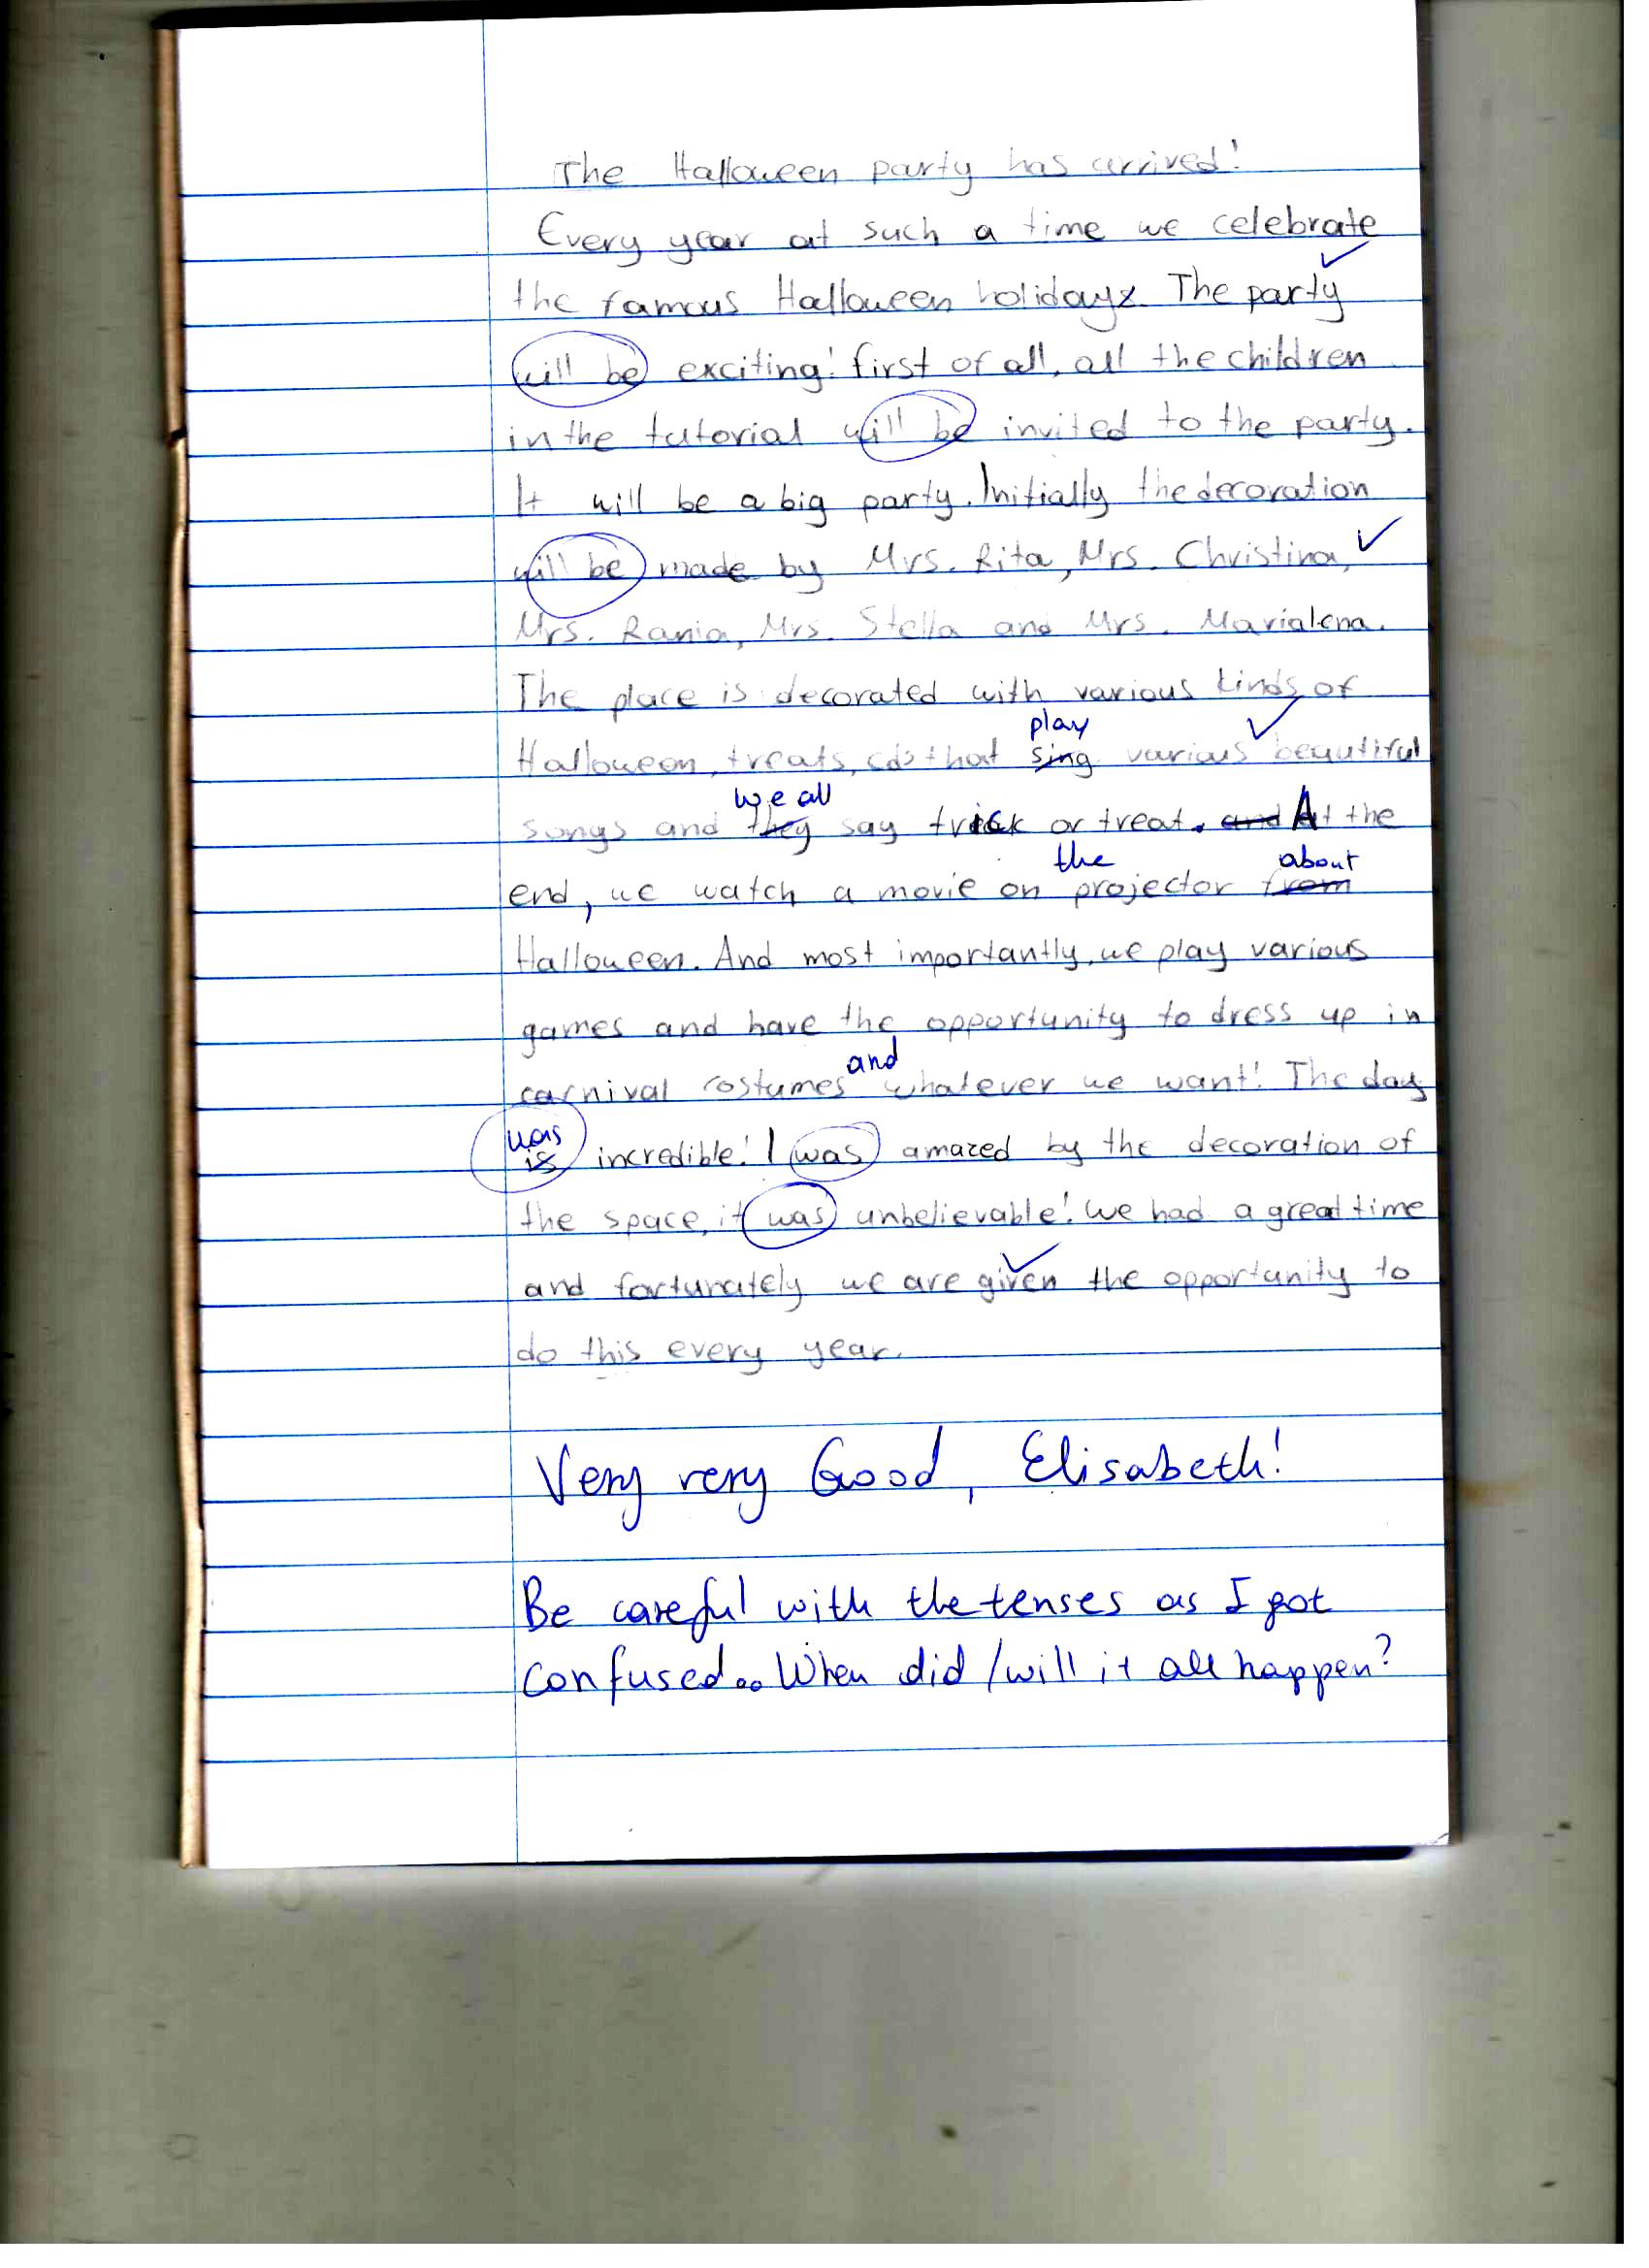 The Halloween party has arrived!
Every year at such a time we celebrate
the famous Halloween holidays. The party
will be exciting! first of all, all the children
in the tutorial will be invited to the party.
It will be a big party. Initially the decoration
will be made by Mrs. Rita, Mrs. Christina,
Mrs. Rania, Mrs. Stella and Mrs. Marialena.
The place is decorated with various kinds of
play
Halloween, treats, cd's that sing various beautiful
we all
songs and they say trick or treat. and At the
the about
end, we watch a movie on projector from
Halloween. And most importantly, we play various
games and have the opportunity to dress up in
and
carnival costumes whatever we want! The day
was
is incredible! I was amazed by the decoration of
the space, it was unbelievable! We had a great time
and fortunately we are given the opportunity to
do this every year.
Very very Good, Elisabeth!
Be careful with the tenses as I got
confused.. When did/will it all happen?